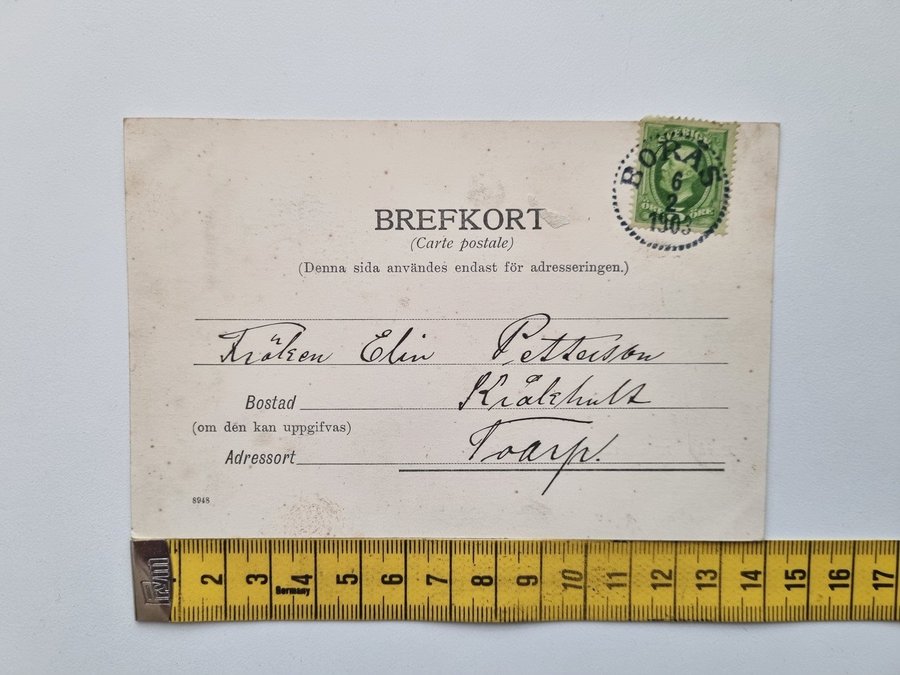 SVERIGE
BORÅS
6
2
1903
ÖRE
BREFKORT
(Carte postale)
(Denna sida användes endast för adresseringen.)
Fröken Elin Petterson
Bostad Kråkhult
(om den kan uppgifvas)
Adressort Toarp.
8948
2 3 4 5 6 7 8 9 10 11 12 13 14 15 16 17
Germany